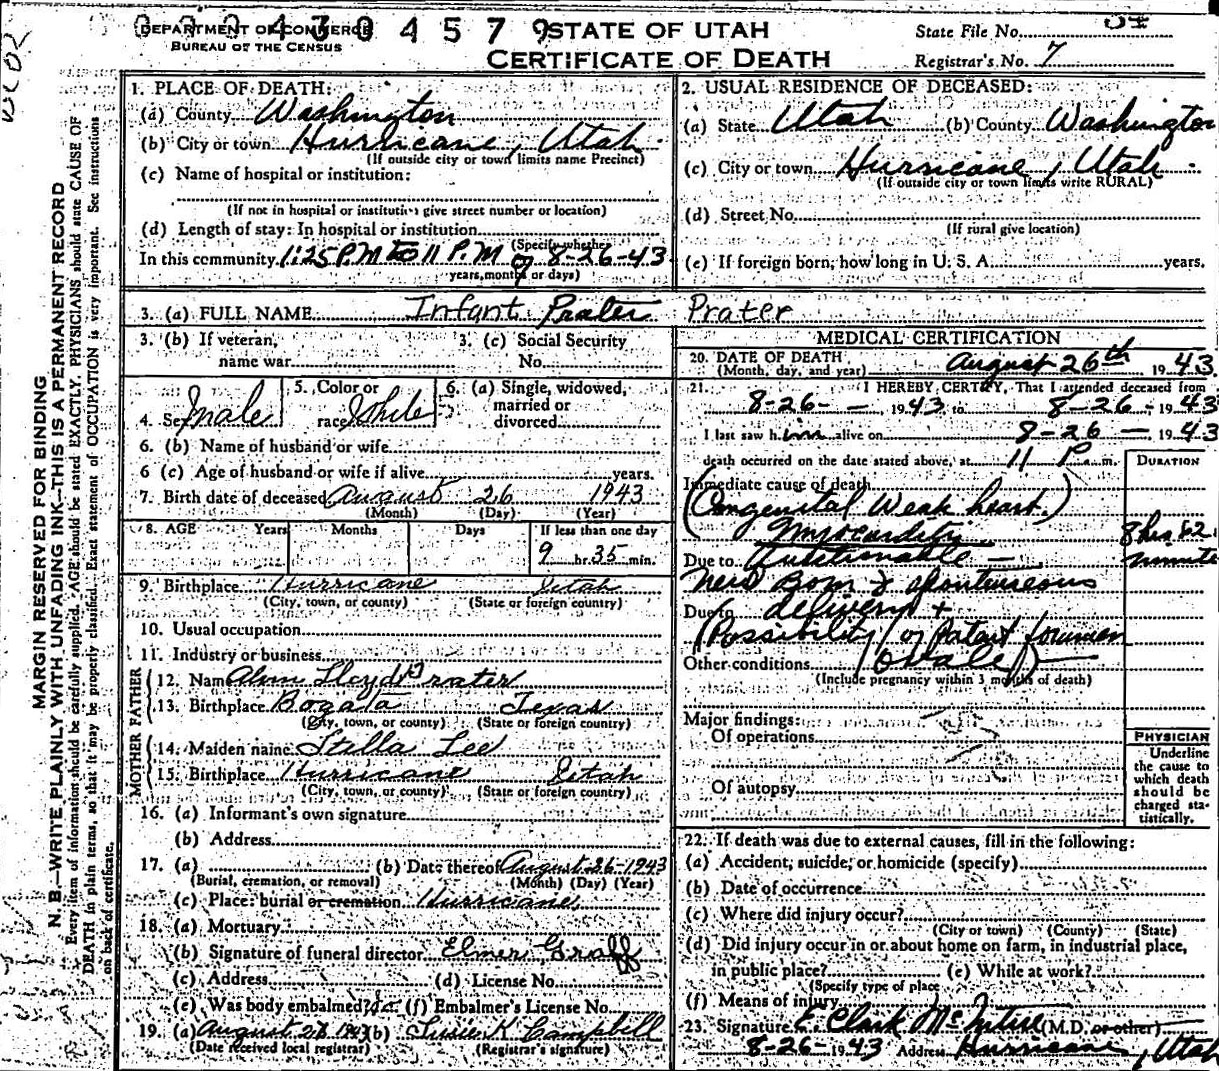 0 0 0 4 3 0 4 5 7 9
DEPARTMENT OF COMMERCE
BUREAU OF THE CENSUS
STATE OF UTAH
CERTIFICATE OF DEATH
State File No. 84
Registrar's No. 7
MARGIN RESERVED FOR BINDING
N. B.—WRITE PLAINLY WITH UNFADING INK—THIS IS A PERMANENT RECORD
Every item of information should be carefully supplied. AGE should be stated EXACTLY. PHYSICIANS should state CAUSE OF
DEATH in plain terms, so that it may be properly classified. Exact statement of OCCUPATION is very important. See instructions
on back of certificate.
1. PLACE OF DEATH:
(a) County Washington
(b) City or town Hurricane, Utah
(If outside city or town limits name Precinct)
(c) Name of hospital or institution:
(If not in hospital or institution give street number or location)
(d) Length of stay: In hospital or institution
(Specify whether
In this community 1:25 P.M to 11 P.M of 8-26-43
years, months or days)
2. USUAL RESIDENCE OF DECEASED:
(a) State Utah (b) County Washington
(c) City or town Hurricane, Utah
(If outside city or town limits write RURAL)
(d) Street No.
(If rural give location)
(e) If foreign born, how long in U. S. A. years.
3. (a) FULL NAME Infant Prater Prater
3. (b) If veteran, name war
3. (c) Social Security No.
4. Sex Male
5. Color or race White
6. (a) Single, widowed, married or divorced
6. (b) Name of husband or wife
6 (c) Age of husband or wife if alive years.
7. Birth date of deceased August 26 1943
(Month) (Day) (Year)
8. AGE Years Months Days If less than one day
9 hr. 35 min.
9. Birthplace Hurricane Utah
(City, town, or county) (State or foreign country)
10. Usual occupation
11. Industry or business
FATHER
12. Name Alvin Lloyd Prater
13. Birthplace Bogata Texas
(City, town, or county) (State or foreign country)
MOTHER
14. Maiden name Stella Lee
15. Birthplace Hurricane Utah
(City, town, or county) (State or foreign country)
16. (a) Informant's own signature
(b) Address
17. (a) (b) Date thereof August 26-1943
(Burial, cremation, or removal) (Month) (Day) (Year)
(c) Place: burial or cremation Hurricane
18. (a) Mortuary
(b) Signature of funeral director Elmer Graff
(c) Address (d) License No.
(e) Was body embalmed? No (f) Embalmer's License No.
19. (a) August 26 1943 (b) Susie K Campbell
(Date received local registrar) (Registrar's signature)
MEDICAL CERTIFICATION
20. DATE OF DEATH August 26th 1943.
(Month, day, and year)
21. I HEREBY CERTIFY, That I attended deceased from
8-26- 1943 to 8-26- 1943
I last saw him alive on 8-26 1943
death occurred on the date stated above, at 11 P. m.
DURATION
Immediate cause of death
(Congenital Weak heart.)
Myocarditis
8 hrs & 2 minutes
Due to
New Born & spontaneous
Due to delivery +
(Possibility of Patent foramen
Other conditions (ovale)
(Include pregnancy within 3 months of death)
Major findings:
Of operations
Of autopsy
PHYSICIAN
Underline
the cause to
which death
should be
charged sta-
tistically.
22. If death was due to external causes, fill in the following:
(a) Accident, suicide, or homicide (specify)
(b) Date of occurrence
(c) Where did injury occur?
(City or town) (County) (State)
(d) Did injury occur in or about home on farm, in industrial place,
in public place? (e) While at work?
(Specify type of place
(f) Means of injury
23. Signature E. Clark McIntire (M.D. or other)
8-26-1943 Address Hurricane, Utah